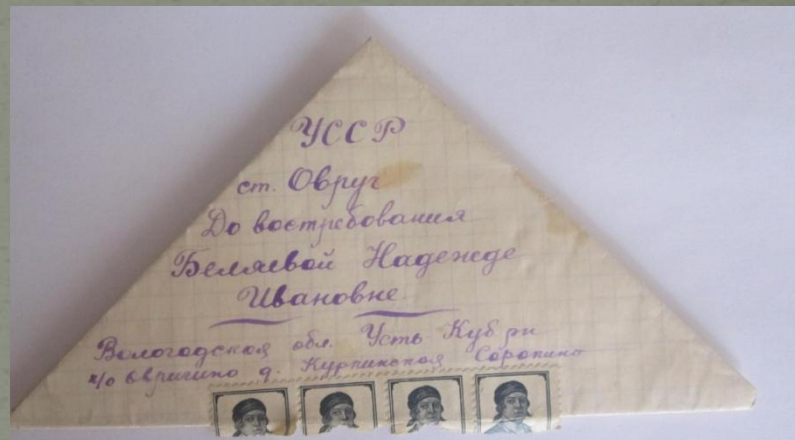 УССР
ст. Овруч
До востребования
Беляевой Надежде
Ивановне
Вологодская обл. Усть Куб рн
п/о д. Курпинская Сорокино